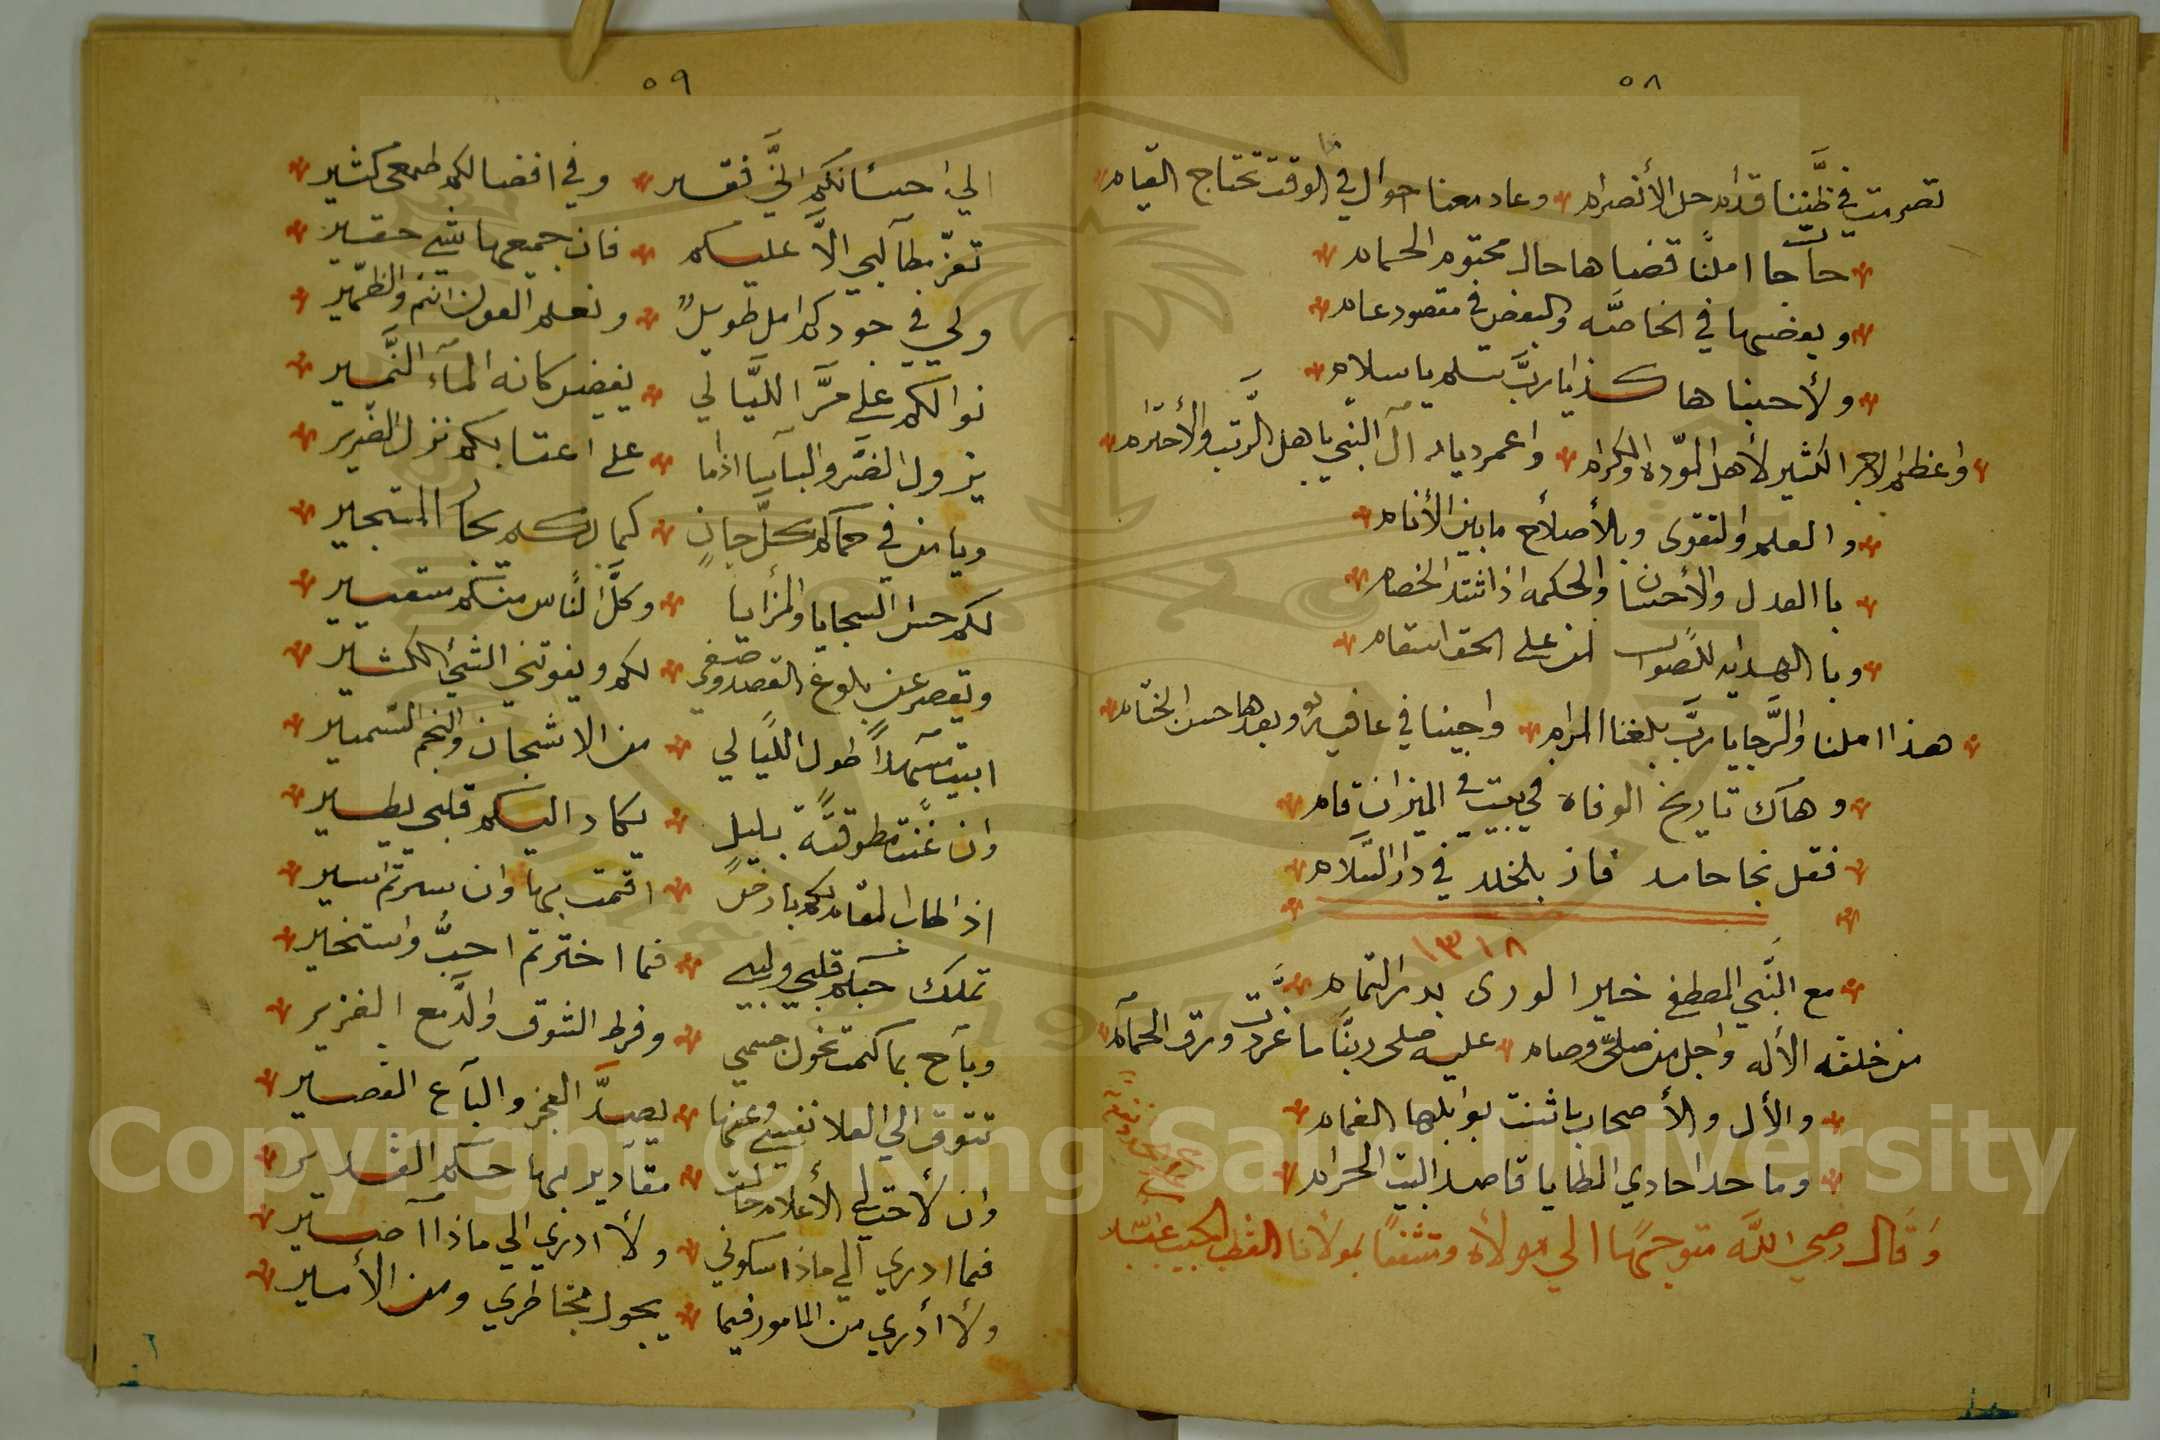 ٥٨
تصرمت في ظننا قدام حل الأنصرام وعاد معنا احوال في الوقت تحتاج القيام
حاجات املنا قضاها حال محتوم الحمام
وبعضها في الخاصه والبعض في مقصود عام
ولأحبنا ها كذا يارب تسلم يا سلام
واعظم الاجر الكثير لأهل المودة والكرام واعمر ديار آل النبي يا هل الرتب والأحترام
والعلم والتقوى وبالأصلاح ما بين الأنام
باالعدل والأحسان والحكمه اذا اشتد الخصام
وباالهدايه للصواب لمن على الحق استقام
هذا املنا والرجا يارب بلغنا المرام واجبنا في عافيه وبعدها حسن الختام
وهاك تاريخ الوفاة في بيت في الميزان قام
فقل نجا حامد فاز بالخلد في دار السلام
١٣١٨
مع النبي المصطفى خير الورى بدر التمام
من خلقه الأله واجل من صلى وصام عليه صلى ربنا ما غردت ورق الحمام
والأل والأصحاب ما شنت بوابلها الغمام
وما حدا حادي المطايا قاصد البيت الحرام
وقال رضي الله متوجها الي مولاه ومتشفعا بمولأنا القطب الحبيب عبد الله
٥٩
الي احسانكم اني فقير وفي افضالكم طمعي كثير
تعز مطالبي الا عليكم فان جميعها شي حقير
ولي في جودكم امل طويل ونعم العون انتم والظهير
نوالكم على مر الليالي يفيض كانه المآء النمير
يزول الضر والبآسا اذا ما على اعتابكم نزل الضرير
ويامن في حماكم كل جان كما بكم يجار المستجير
لكم حسن السجايا والمزايا وكل الناس منكم مستعير
وتقصر عن بلوغ القصد وصفي لكم ويفوتني الشئ الكثير
ابيت مسهدا طول الليالي من الاشجان والنجم السمير
وان غنت مطوقة بليل يكاد اليكم قلبي يطير
اذا طاب المقام لكم بارض اقمت بها وان سرتم اسير
تملك حبكم قلبي ولبي فما اخترتم احب واستخير
وبآح بما كتمت نحول جسمي وفرط الشوق والدمع الغزير
تتوق الي العلا نفسي وعنها يصد العجز والبآع القصير
وان لأحت لي الأعلام حالت مقادير بها حكم القدير
فما ادري الي ماذا سكوني ولأ ادري الي ماذا آصير
ولأ أدري من المامور فيما يجول بخاطري ومن الأمير